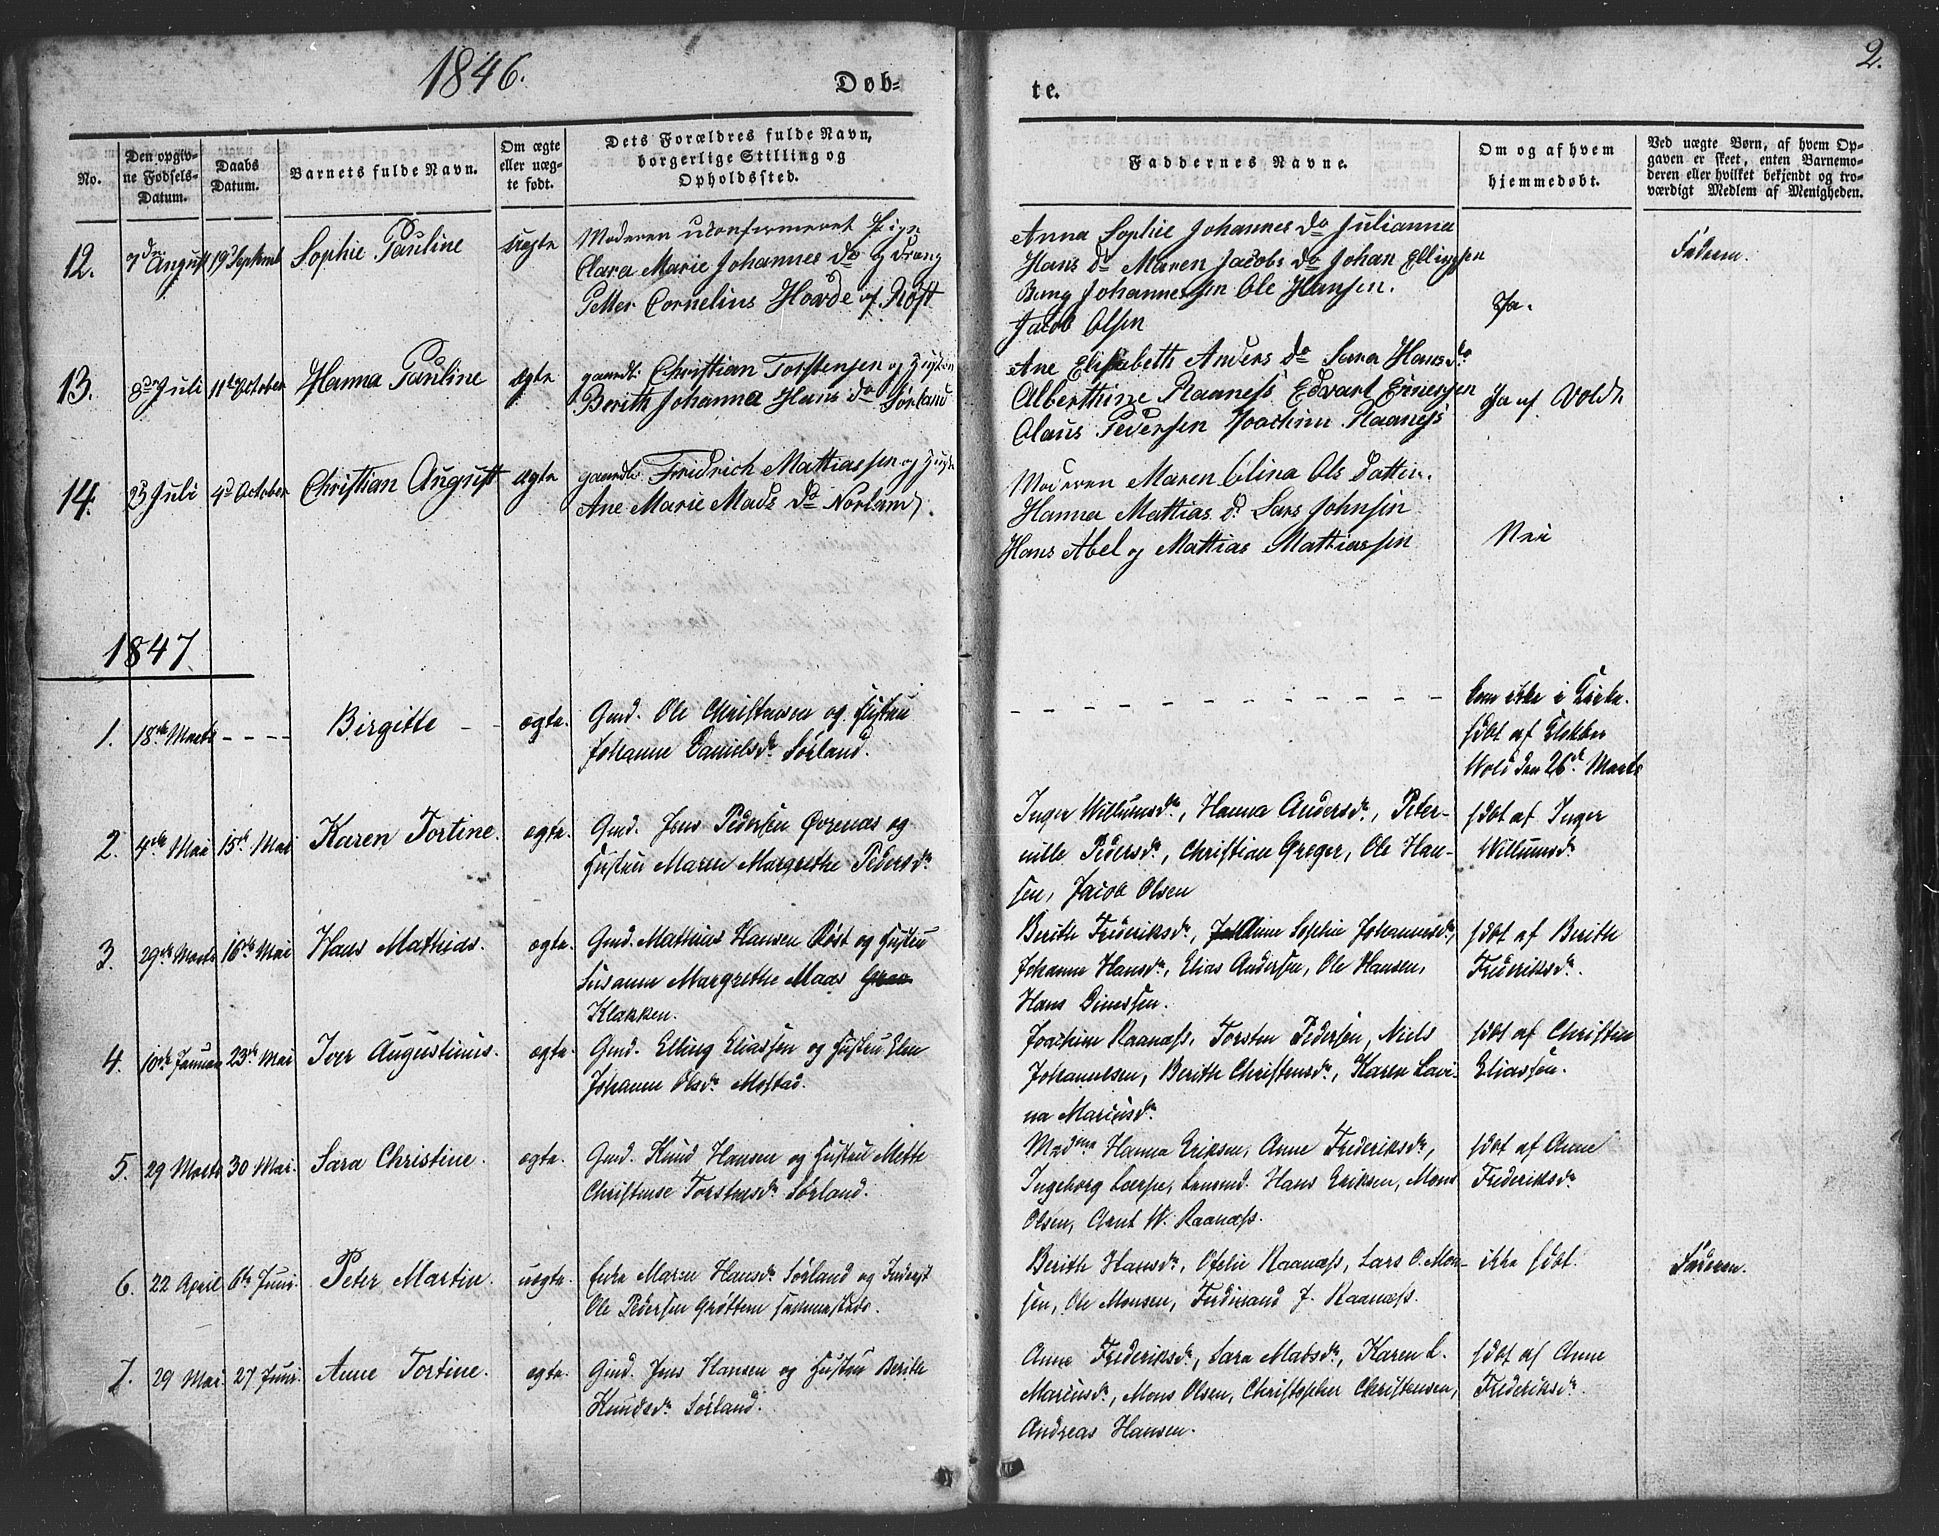 1846.
Døb-
te.
2.
No.
Den opgiv-
ne Fødsels-
Datum.
Daabs
Datum.
Barnets fulde Navn.
Om ægte
eller uæg-
te født.
Dets Forældres fulde Navn,
borgerlige Stilling og
Opholdssted.
Faddernes Navne.
Om og af hvem
hjemmedøbt.
Ved uægte Børn, af hvem Op-
gaven er skeet, enten Barnemo-
deren eller hvilket bekjendt og tro-
værdigt Medlem af Menigheden.
12. 7de August 19 Septemb Sophie Pauline uægte Moderen uconfirmeret Pige
Clara Marie Johannes Da og Dreng
Petter Cornelius Hovde af Røst
Anna Sophie Johannes Da Julianna
Hans Da Maren Jacobs Da Johan Ellingsen
Johannessen Ole Hansen.
Jacob Olsen
Ja.
Faderen.
13. 8de Juli 11te October Hanna Pauline ægte gaardb: Christian Torstensen og Hustru
Berith Johanna Hans Da Sørland
Ane Elisabeth Anders Da Sara Hans Da
Alberthine Raaness Edvart Einersen
Claus Pedersen Joachim Raaness
Ja af Voldt
14. 23 Juli 4de October Christian August ægte gaardb: Fridrich Mathiassen og Hustru
Ane Marie Mads Da Norland.
Moderen Maren Elina Ols Datter.
Hanna Mattias D. Lars Johnsen
Hans Abel og Mattias Mattiassen
Nei
1847
1. 18de Marts - - - - Birgitte - ægte. Gmd. Ole Christensen og Hustru
Johanne Danielsdr Sørland.
- - - - - - - - - -
kom ikke i Kirke.
hdbt af Klokker
Wold den 26de Marts
2. 4de Mai 15de Mai Karen Tortine. ægte. Gmd. Jens Pedersen Øvrenæs og
Hustru Maren Margrethe Pedersdr
Inger Willumsdr, Hanna Andersdr, Peter-
nille Pedersdr, Christian Greger, Ole Han-
sen, Jacob Olsen
hdbt af Inger
Willumsdr
3. 29de Marts 16de Mai Hans Mathias. ægte. Gmd. Mathias Hansen Røst og Hustru
Susanne Margrethe Maas
Klakken.
Berith Frederiksdr, Anne Sophie Johannesdr,
Johanne Hansdr, Elias Andersen, Ole Hansen,
Hans Dinessen.
hdbt af Berith
Frederiksdr.
4. 10de Januar 23de Mai Iver Augustinus. ægte. Gmd. Elling Eliassen og Hustru Elen
Johanne Olsdr Mostad.
Joachim Raanæss, Torsten Pedersen, Niels
Johannesen, Berith Christensdr, Karen Lavi-
na Mariusdr.
hdbt af Christian
Eliassen.
5. 29 Marts 30 Mai. Sara Christine. ægte. Gmd. Knud Hansen og Hustru Mette
Christense Torstensdr Sørland.
Madme Hanna Eriksen, Anne Frederiksdr,
Ingeborg Lærpe, Lensmd. Hans Eriksen, Mons
Olsen, Arnt W. Raanæss.
hdbt af Anne
Frederiksdr
6. 22 April 6te Juni. Peter Martin. uægte. Enke Maren Hansdr Sørland og Inderst
Ole Pedersen Grøttem sammesteds.
Berith Hansdr, Ofelie Raanæss, Lars O. Mon-
sen, Ole Monsen, Ferdinand J. Raanæss.
ikke hdbt.
Faderen.
7. 29 Mai. 27 Juni. Anne Tortine. ægte. Gmd. Jens Hansen og Hustru Berith
Knudsdr Sørland.
Anne Frederiksdr, Sara Madsdr, Karen L.
Mariusdr, Mons Olsen, Christopher Christensen,
Andreas Hansen.
hdbt af Anne
Frederiksdr.